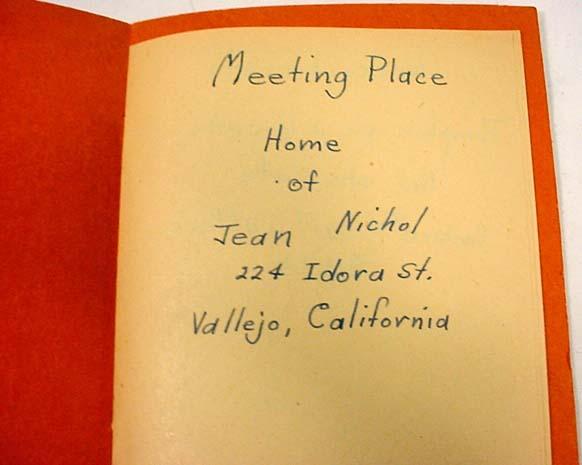 Meeting Place
Home
of
Jean Nichol
224 Idora St.
Vallejo, California